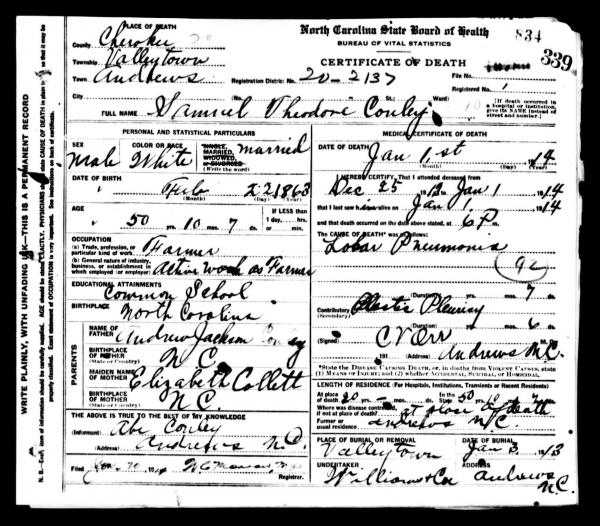 North Carolina State Board of Health
BUREAU OF VITAL STATISTICS
CERTIFICATE OF DEATH
834
339
PLACE OF DEATH
County Cherokee
Township Valleytown
Town Andrews
City
Registration District No. 20-2137
File No.
Registered No. 1
[If death occurred in a hospital or institution, give its NAME instead of street and number.]
FULL NAME Samuel Theodore Conley
PERSONAL AND STATISTICAL PARTICULARS
SEX Male
COLOR OR RACE White
SINGLE, MARRIED, WIDOWED, OR DIVORCED (Write the word) married
DATE OF BIRTH Feb 22 1863
(Month) (Day) (Year)
AGE 50 yrs. 10 mos. 7 ds.
If LESS than 1 day, hrs. or min.
OCCUPATION
(a) Trade, profession, or particular kind of work Farmer
(b) General nature of industry, business, or establishment in which employed (or employer) Active work as Farmer
EDUCATIONAL ATTAINMENTS Common School
BIRTHPLACE (State or Country) North Carolina
PARENTS
NAME OF FATHER Andrew Jackson Conley
BIRTHPLACE OF FATHER (State or Country) N C
MAIDEN NAME OF MOTHER Elizabeth Collett
BIRTHPLACE OF MOTHER (State or Country) N C
THE ABOVE IS TRUE TO THE BEST OF MY KNOWLEDGE
(Informant) Abe Conley
(Address) Andrews N.C.
Filed 1914
Registrar.
MEDICAL CERTIFICATE OF DEATH
DATE OF DEATH Jan 1st 1914
(Month) (Day) (Year)
I HEREBY CERTIFY, That I attended deceased from
Dec 25 1913 Jan 1 1914
that I last saw him alive on Jan 1. 1914
and that death occurred on the date above stated, at 6 P m.
The CAUSE OF DEATH* was as follows:
Lobar Pneumonia
(92)
(Duration) yrs. mos. 7 ds.
Contributory (Secondary) Pleurisy
(Duration) yrs. mos. 6 ds.
(Signed) C V Orr
191 (Address) Andrews N.C.
*State the DISEASE CAUSING DEATH, or, in deaths from VIOLENT CAUSES, state (1) MEANS OF INJURY; and (2) whether ACCIDENTAL, SUICIDAL, or HOMICIDAL.
LENGTH OF RESIDENCE (For Hospitals, Institutions, Transients or Recent Residents)
At place of death 20 yrs. mos. ds. In the State 50 yrs. 10 mos. 7 ds.
Where was disease contracted if not at place of death? at place of death
Former or usual residence Andrews N.C.
PLACE OF BURIAL OR REMOVAL Valleytown
DATE OF BURIAL Jan 3 1913
UNDERTAKER
ADDRESS Andrews N.C.
WRITE PLAINLY, WITH UNFADING INK—THIS IS A PERMANENT RECORD